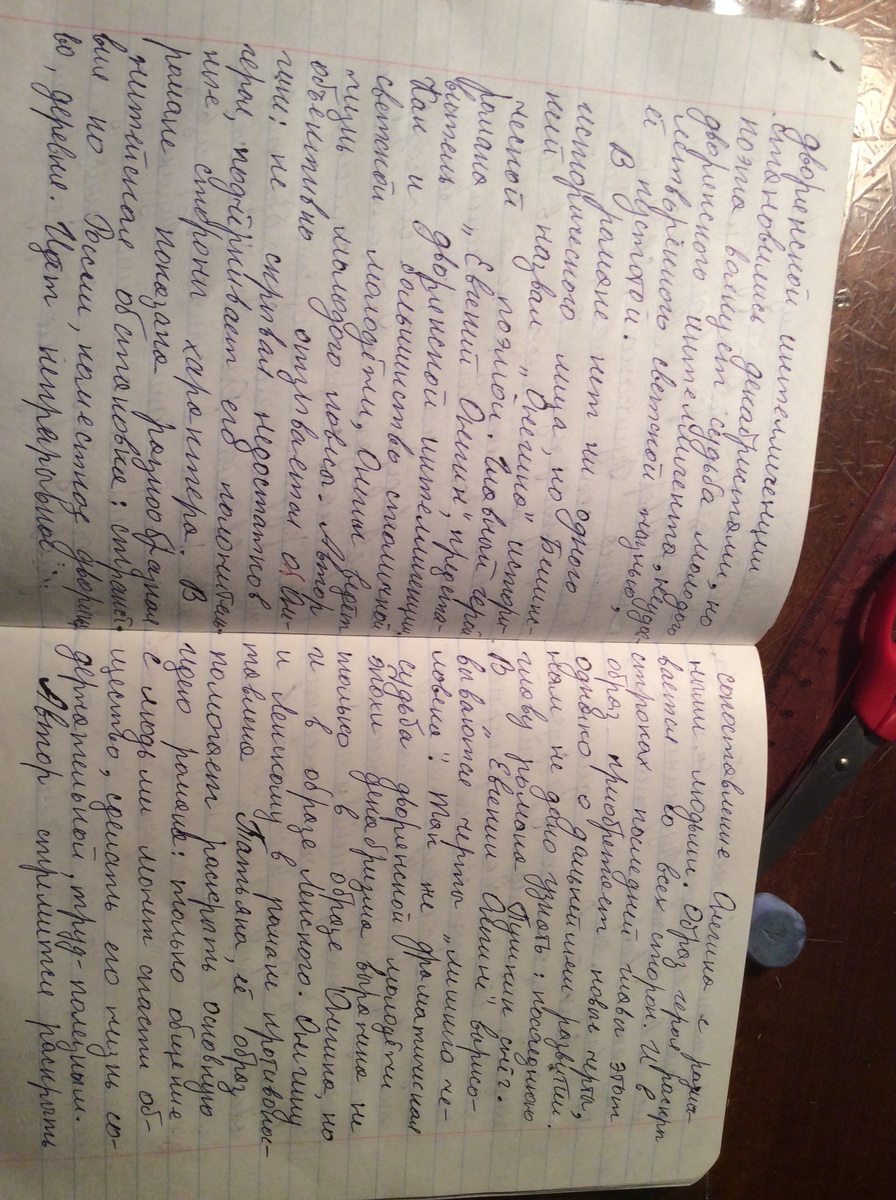 дворянской интеллигенции
становились декабристами, но
поэта волнует судьба молодого
дворянского интеллигента, неудов-
летворённого светской жизнью,
её пустотой.
В романе нет ни одного
исторического лица, но Белинс-
кий назвал „Онегина" истори-
ческой поэмой. Главный герой
романа „Евгений Онегин", предста-
витель дворянской интеллигенции.
Как и большинство столичной
светской молодёжи, Онегин ведёт
жизнь молодого повеса. Автор
объективно отзывается об Оне-
гине: не скрывая недостатков
героя, подчёркивает его положитель-
ные стороны характера. В
романе показана разнообразная
житейская обстановка: странст-
вия по России, поместное дворянст-
во, деревня. Идёт непрерывное
сопоставление Онегина с разны-
ными людьми. Образ героя раскры
вается со всех сторон. И в
строках последней главы этот
образ приобретает новые черты,
однако о дальнейшем развитии
нам не дано узнать: последнюю
главу романа Пушкин сжёг.
В „Евгении Онегине" вырисо-
вываются черты „лишнего че-
ловека". Так же драматическая
судьба дворянской молодёжи
эпохи декабризма выражена не
только в образе Онегина, но
и в образе Ленского. Онегину
и Ленскому в романе противопос-
тавлена Татьяна, её образ
помогает раскрыть основную
идею романа: только общение
с людьми может спасти об-
щество, сделать его жизнь со-
держательной, труд - полезным.
Автор стремится раскрыть